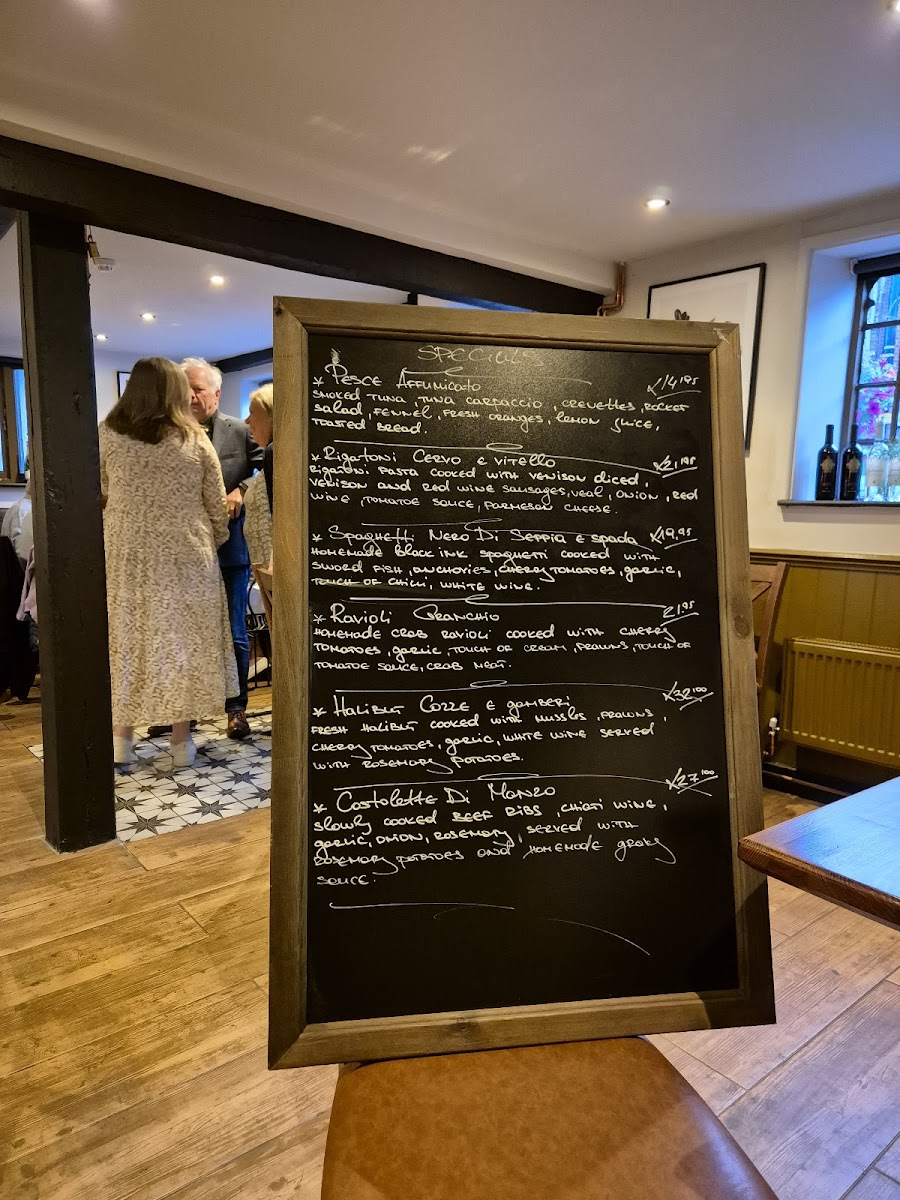 SPECIALS
* Pesce Affumicato £14.95
smoked tuna, tuna carpaccio, crevettes, rocket
salad, fennel, fresh oranges, lemon juice,
toasted bread.
* Rigatoni Cervo e vitello £21.95
rigatoni pasta cooked with venison diced,
venison and red wine sausages, veal, onion, red
wine, tomatoe sauce, parmesan cheese.
* Spaghetti Nero Di Seppia e spada £19,95
homemade black ink spaghetti cooked with
sword fish, anchovies, cherry tomatoes, garlic,
touch of chilli, white wine.
* Ravioli Granchio 21.95
homemade crab ravioli cooked with cherry
tomatoes, garlic, touch of cream, prawns, touch of
tomatoe sauce, crab meat.
* Halibut Cozze e gamberi £32.00
fresh halibut cooked with mussles, prawns,
cherry tomatoes, garlic, white wine served
with rosemary potatoes.
* Costolette Di Manzo £27.00
slowly cooked BEEF RIBS, chiati wine,
garlic, onion, rosemary, served with
rosemary potatoes and homemade gravy
sauce.